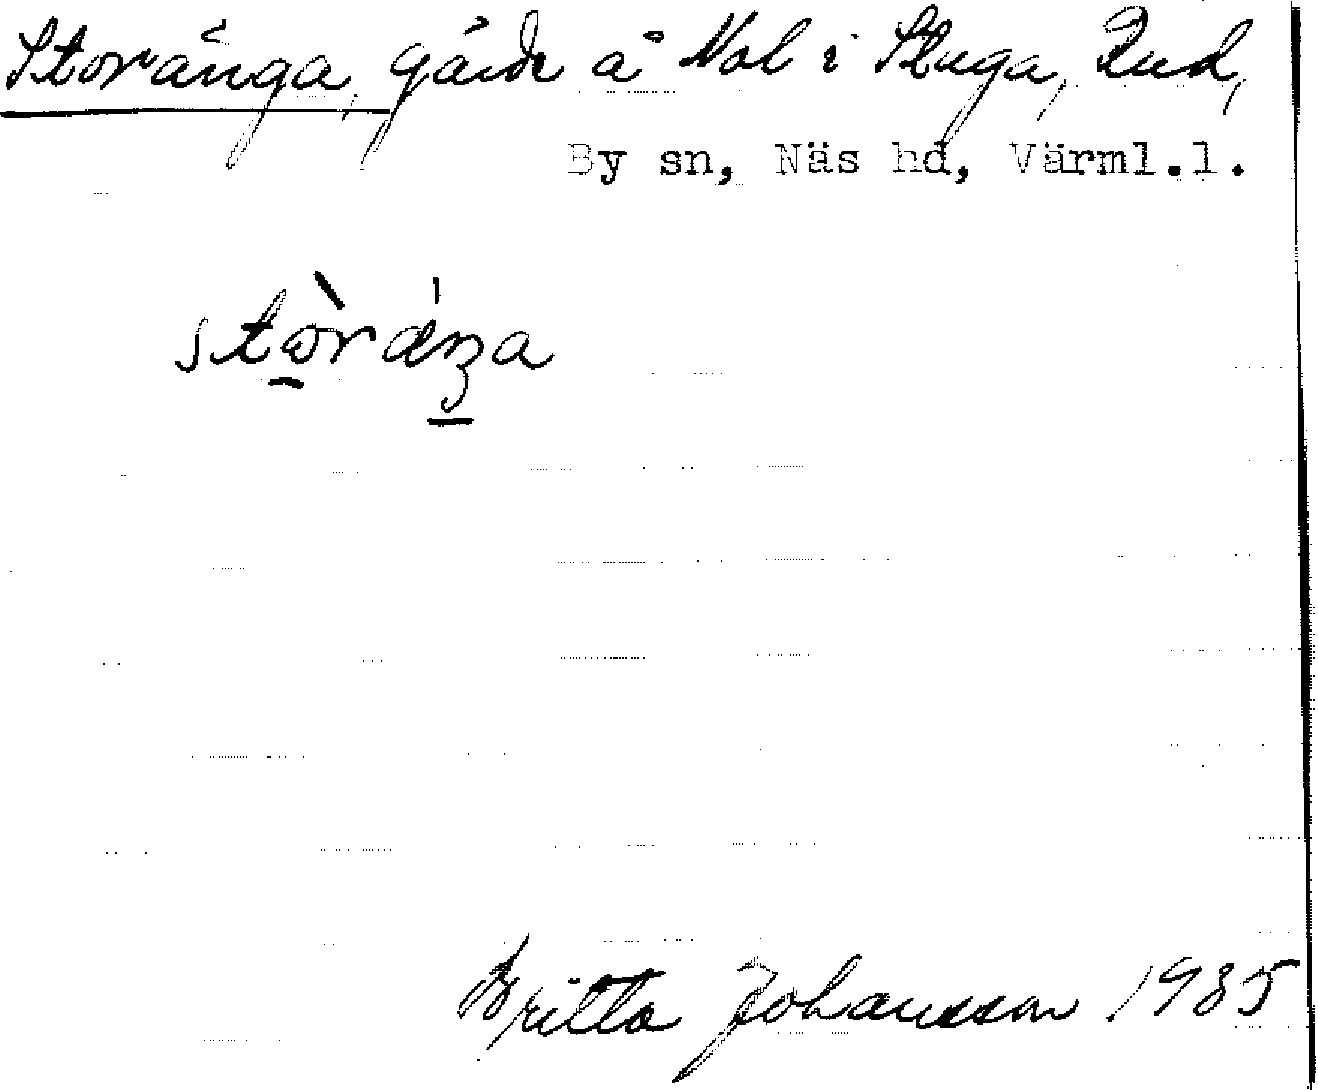 Storänga, gärde å Nol i Stuga, Rud,
By sn, Näs hd, Värml.l.
Britta Johansson 1985